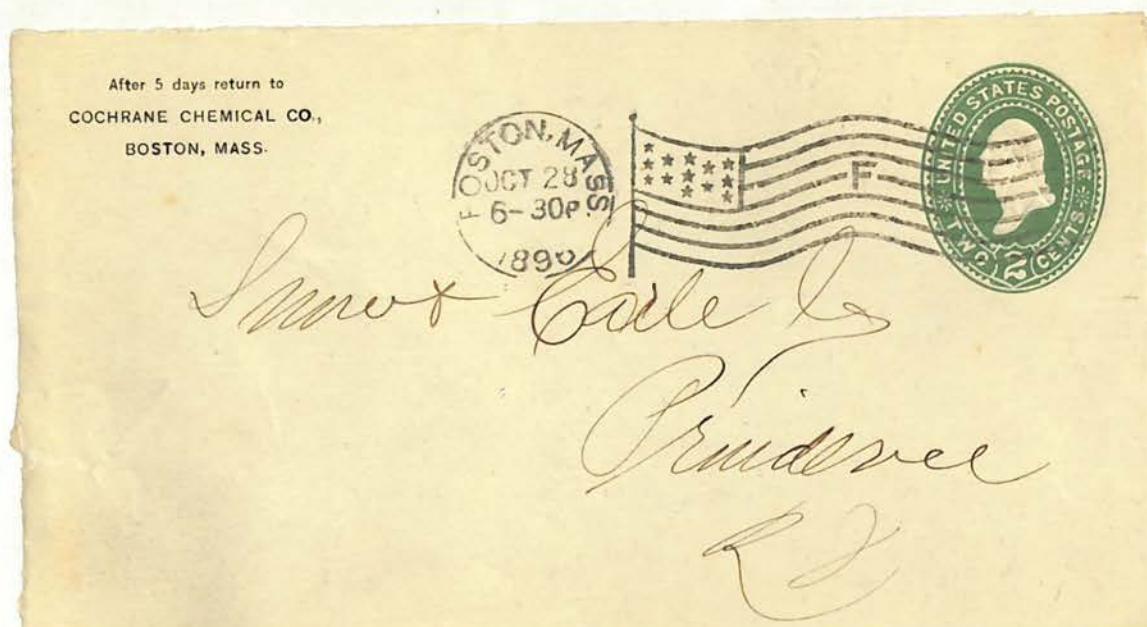 After 5 days return to
COCHRANE CHEMICAL CO.,
BOSTON, MASS.
BOSTON, MASS
OCT 28
6-30P
F
UNITED STATES POSTAGE
TWO 2 CENTS
Providence
R I